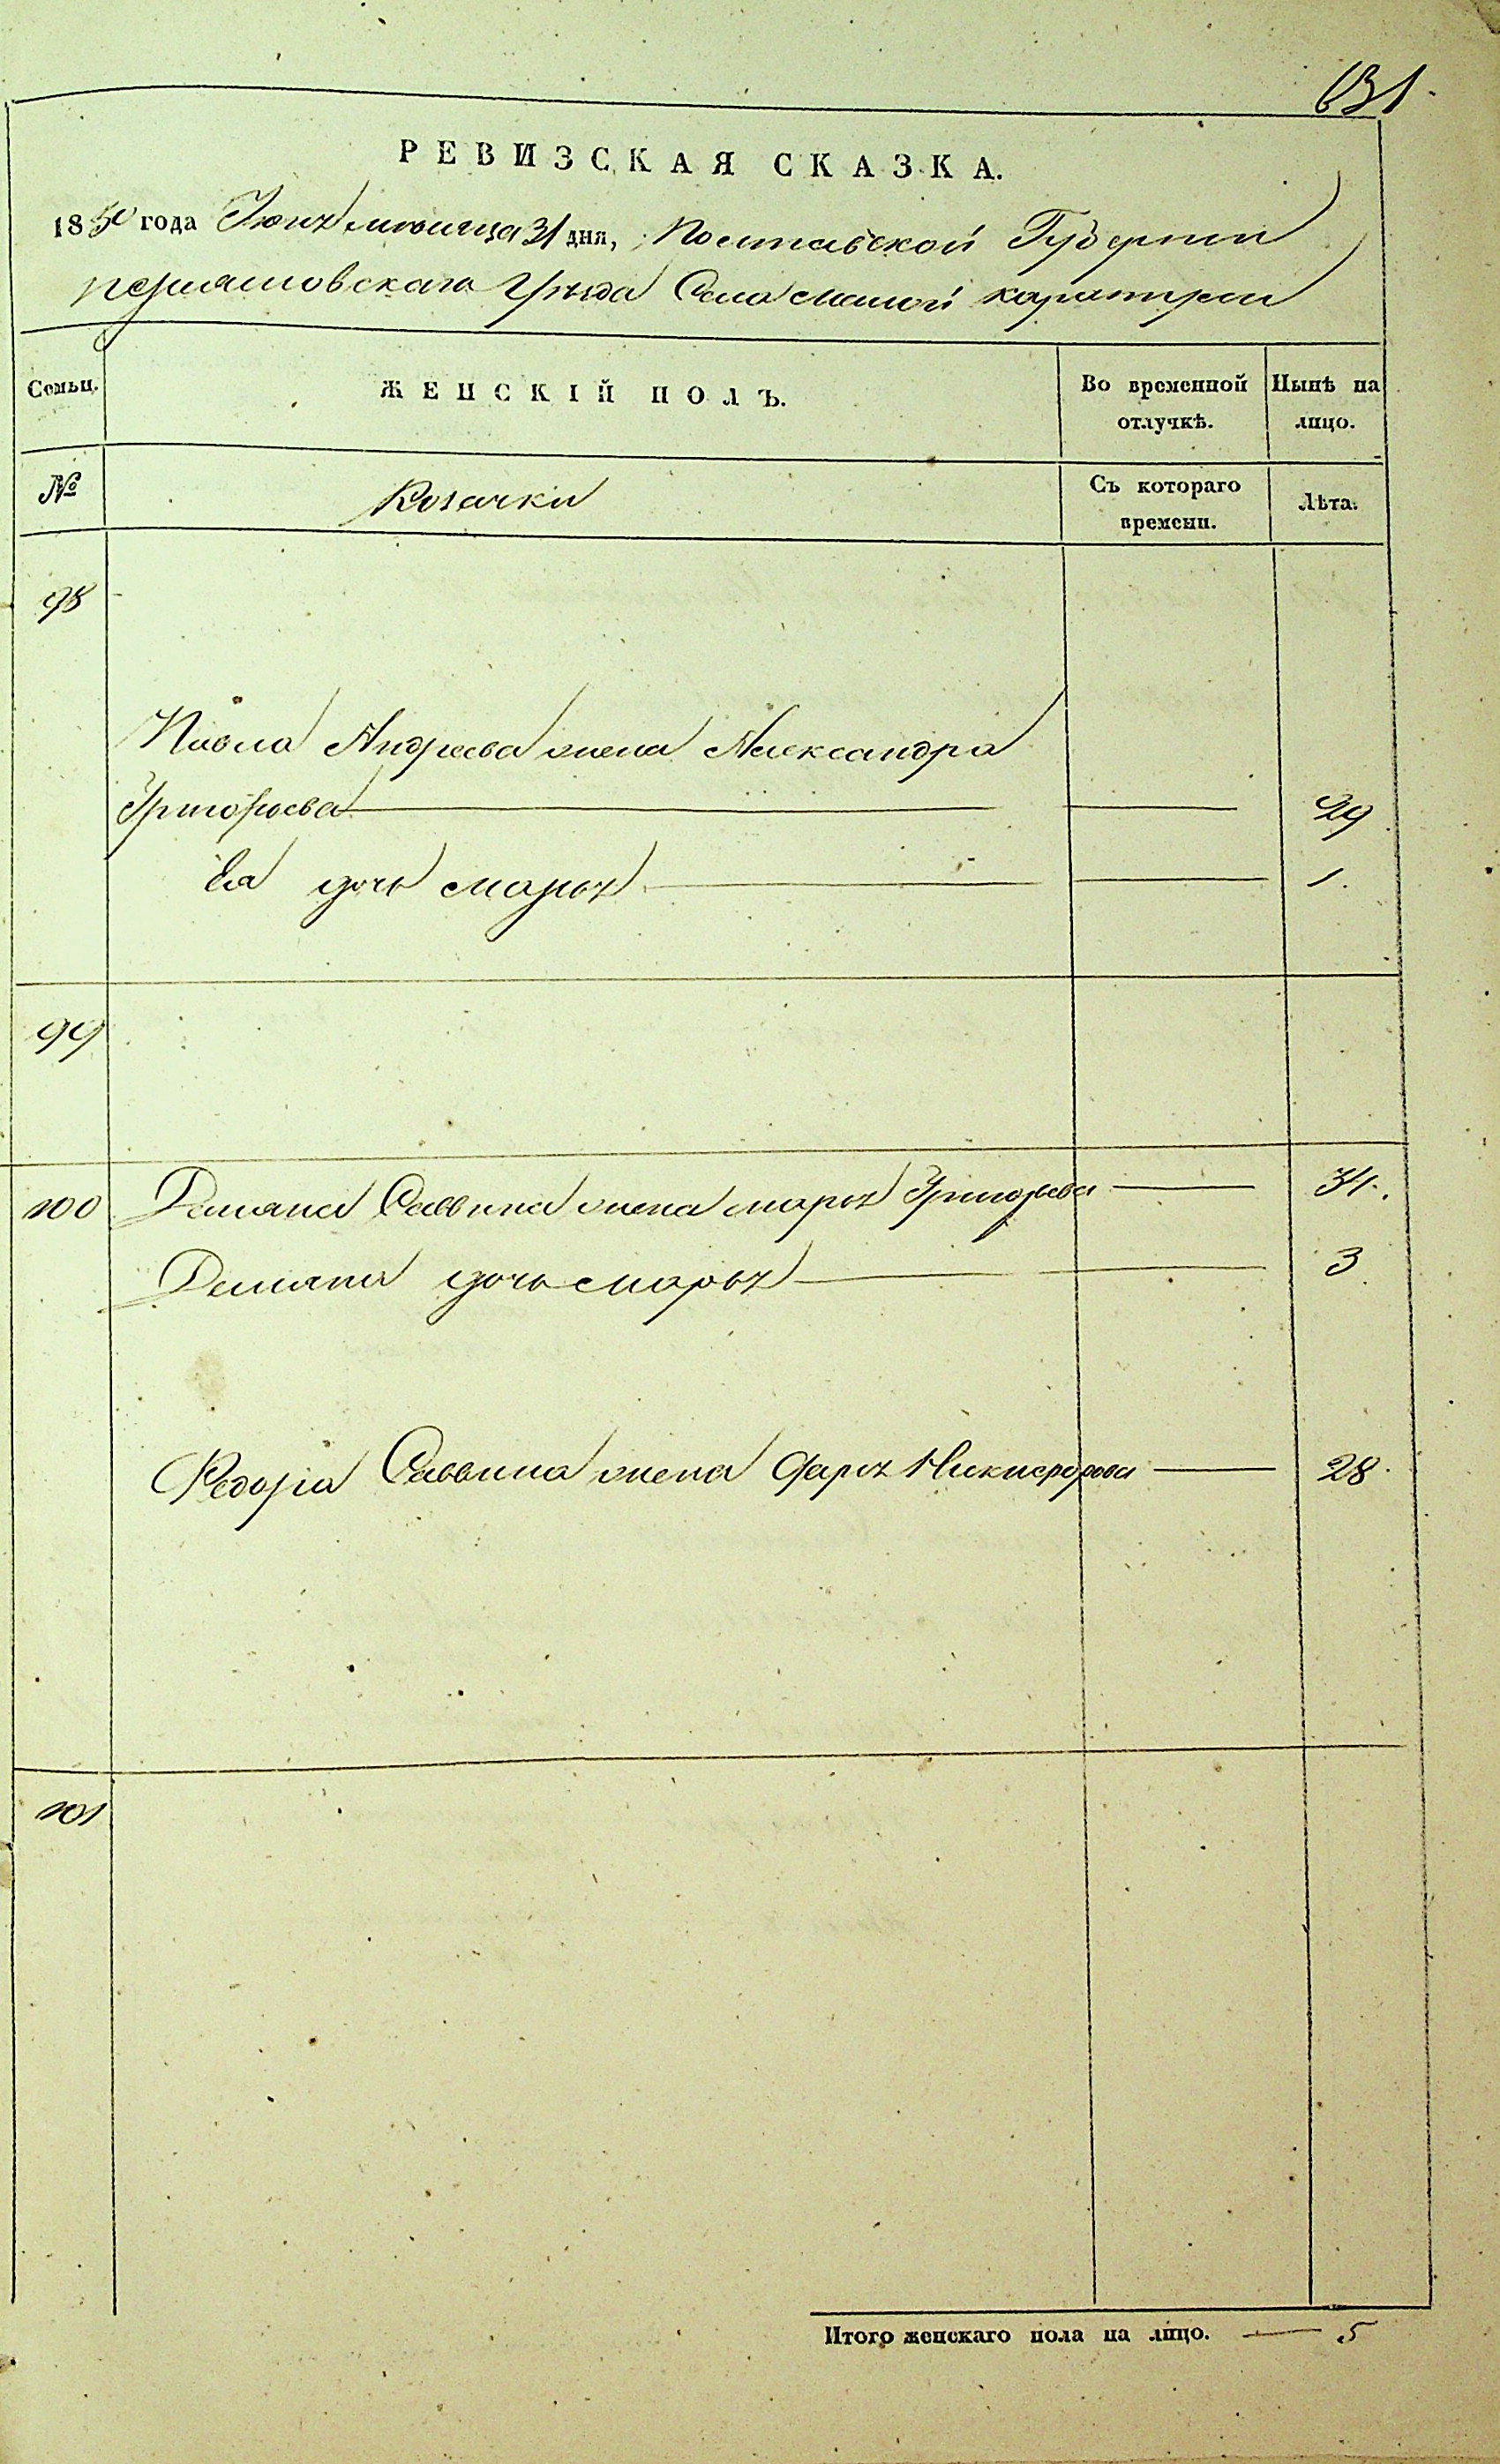 631.
РЕВИЗСКАЯ СКАЗКА.
1850 года Июля месяца 31 дня, Полтавской Губернии
Переяславскаго Уезда Села малой каратули
Семьи. ЖЕНСКІЙ ПОЛЪ. Во временной отлучкѣ. Нынѣ на лицо.
№ Козачки Съ котораго времени. Лѣта.
98
Павла Андреева жена Александра
Григорьева 29
Ея дочь марья 1.
99
100 Демяна Саввина жена марья Григорьева 34.
Демяна дочь марья 3
Федора Саввина жена Дарья Никифорова 28.
101
Итого женскаго пола на лицо. 5